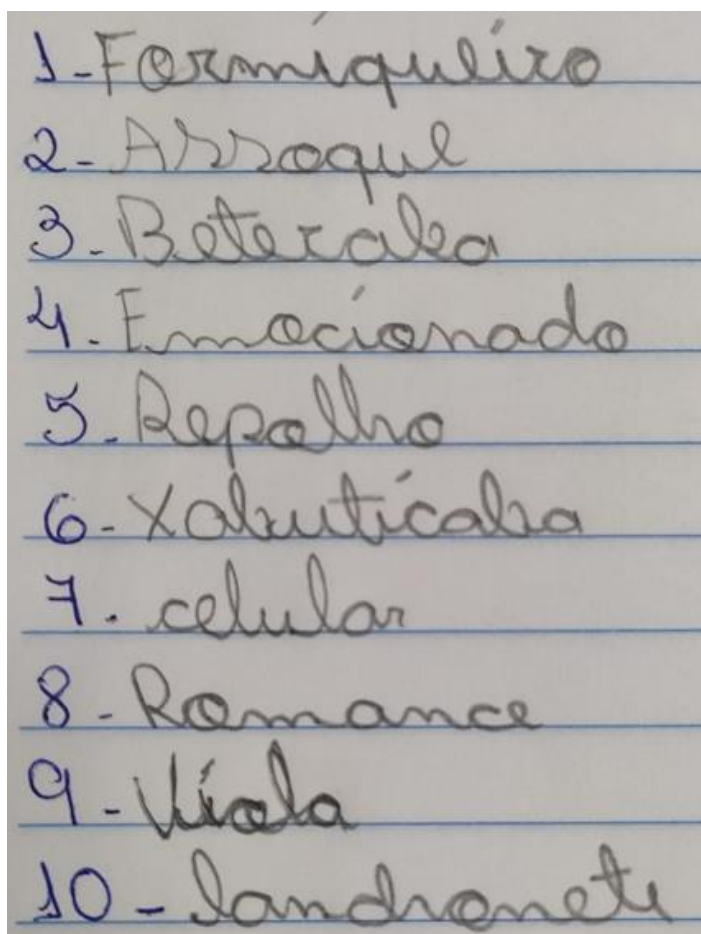 1-Formiqueiro
2-Arroque
3-Beteraba
4-Emocionado
5-Repolho
6-Xabuticaba
7-celular
8-Romance
9-Viola
10-landronete